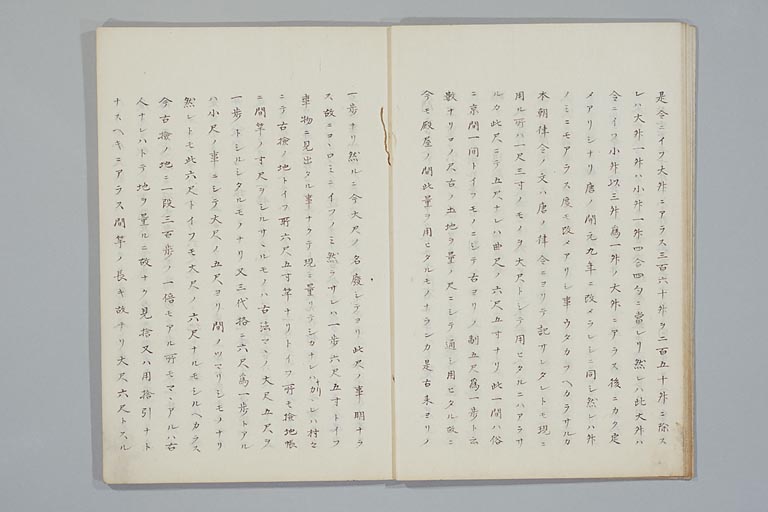 是令ニイフ大升ニアラス三百六十升ヲ二百五十升ニ除ス
レハ大升一升ハ小升一升四合四勺ニ當レリ然レハ此大升ハ
令ニイフ小升以三升爲一升ノ大升ニアラス後ニカク定
メアリシナリ唐ノ開元九年ニ改メラレシニ同シ然レハ升
ノミニモアラス度モ改メアリシ事ウタカフヘカラサルカ
本朝律令ノ文ハ唐ノ律令ニヨリテ記サレタレトモ現ニ
用ル所ハ一尺三寸ノモノヲ大尺トシテ用ヒタルニハアラサ
ルカ此尺ニテ五尺ナレハ曲尺ノ六尺五寸ナリ此一間ハ俗
ニ京間一間トイフモノニシテ古ヨリノ制五尺爲一歩ト云
數ナリマノ尺古ノ土地ヲ量ノ尺ニシテ通シ用ヒタル故ニ
今モ殿屋ノ間此量ヲ用ヒタルモノナランカ是古来ヨリノ
一歩ナリ然ルニ今大尺ノ名廢レテヨリ此尺ノ事明ナラ
ス故ニコヽロミニイフノミ然ラサレハ一歩六尺五寸トイフ
事物ニ見出タル事ナクテ現ニ量リテシカナレハナリカヽレハ村々
ニテ古撿ノ地トイフ所六尺五寸竿ナリトイフ所モ撿地帳
ニ間竿ノ寸尺ヲシルサヽルモノハ古法マヽノ大尺五尺ヲ
一歩トシルシタルモノナリ又三代格ニ六尺爲一歩トアル
ハ小尺ノ事ニシテ大尺ノ五尺ヨリ間ノツマリシモノナリ
然レトモ此六尺トイフモ大尺ノ六尺ナルモシルヘカラス
今古撿ノ地ニ一段三百歩ノ一倍モアル所モマヽアルハ古
人ナレハトテ地ヲ量ルニ故ナク見捨又ハ用捨引ナト
ナスヘキニアラス間竿ノ長キ故ナリ大尺六尺トスル